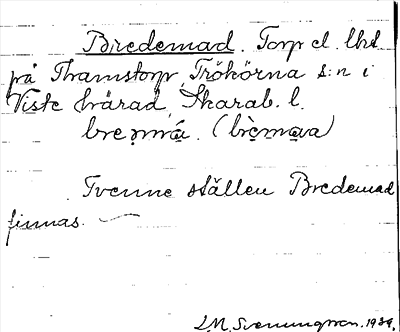 Bredemad. Torp el. lht
på Thamstorp, Trökörna s:n i
Viste härad, Skarab. l.
(brèmava)
Tvenne ställen Bredemad
finnas.
L.M. Svenungsson. 1934.